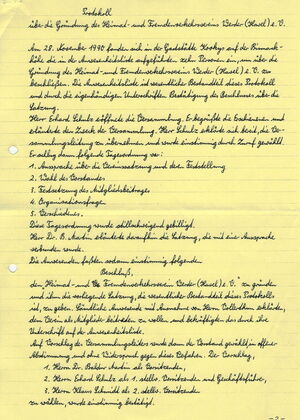 Protokoll
über die Gründung des Heimat- und Fremdenverkehrsvereins Werder (Havel) e.V.
Am 28. November 1990 fanden sich in der Gaststätte Kockys auf der Bismarck-
höhe die in der Anwesenheitsliste aufgeführten zehn Personen ein, um über die
Gründung des Heimat- und Fremdenverkehrsvereins Werder (Havel) e.V. zu
beschließen. Die Anwesenheitsliste ist wesentlicher Bestandteil dieses Protokolls
und durch die eigenhändigen Unterschriften Bestätigung des Beschlusses über die
Satzung.
Herr Erhard Schulz eröffnete die Versammlung. Er begrüßte die Erschienenen und
erläuterte den Zweck der Versammlung. Herr Schulz erklärte sich bereit, die Ver-
sammlungsleitung zu übernehmen und wurde einstimmig durch Zuruf gewählt.
Er schlug dann folgende Tagesordnung vor:
1. Aussprache über die Vereinssatzung und deren Feststellung
2. Wahl des Vorstandes
3. Festsetzung des Mitgliedsbeitrages
4. Organisationsfragen
5. Verschiedenes.
Diese Tagesordnung wurde stillschweigend gebilligt.
Herr Dr. B. Martin erläuterte daraufhin die Satzung, die mit einer Aussprache
verbunden wurde.
Die Anwesenden faßten sodann einstimmig folgenden
Beschluß,
den Heimat- und Fremdenverkehrsverein Werder (Havel) e.V. zu gründen
und ihm die vorliegende Satzung, die wesentlicher Bestandteil dieses Protokolls
ist, zu geben. Sämtliche Anwesende mit Ausnahme von Herrn erklärten,
dem Verein als Mitglieder beitreten zu wollen und bekräftigten das durch ihre
Unterschrift auf der Anwesenheitsliste.
Auf Vorschlag des Versammlungsleiters wurde dann der Vorstand gewählt, in offener
Abstimmung und ohne Widerspruch gegen dieses Verfahren. Der Vorschlag,
1. Herrn Dr. Baldur Martin als Vorsitzenden,
2. Herrn Erhard Schulz als 1. stellv. Vorsitzenden und Geschäftsführer,
3. Herrn Klaus Schmidt als 2. stellv. Vorsitzenden
zu wählen, wurde einstimmig bestätigt.
-2-